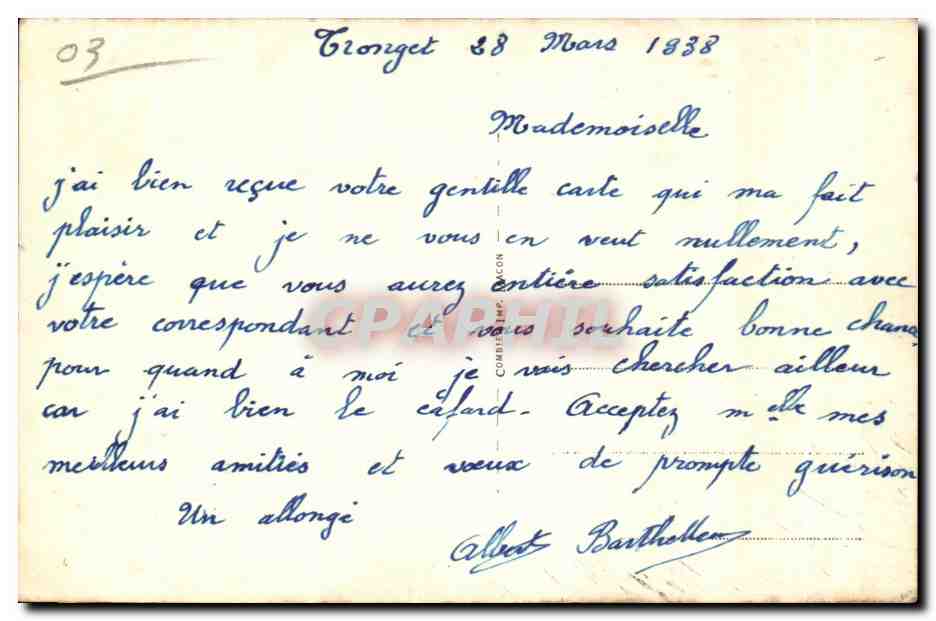 03
Tronget 28 Mars 1938
Mademoiselle
j'ai bien reçue votre gentille carte qui ma fait
plaisir et je ne vous en veut nullement,
j'espère que vous aurez entière satisfaction avec
votre correspondant et vous souhaite bonne chance
pour quand à moi je vais chercher ailleur
car j'ai bien le cafard. Acceptez melle mes
meilleurs amitiés et vœux de prompte guérison
Un allongé
Albert
COMBIER IMP. MACON
CPAPHIL